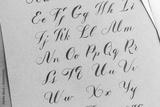 Ee Ff Gg Hh Ii
Jj Kk Ll Mm
Nn Oo Pp Qq Rr
Ss Tt Uu Vv
Ww Xx Yy